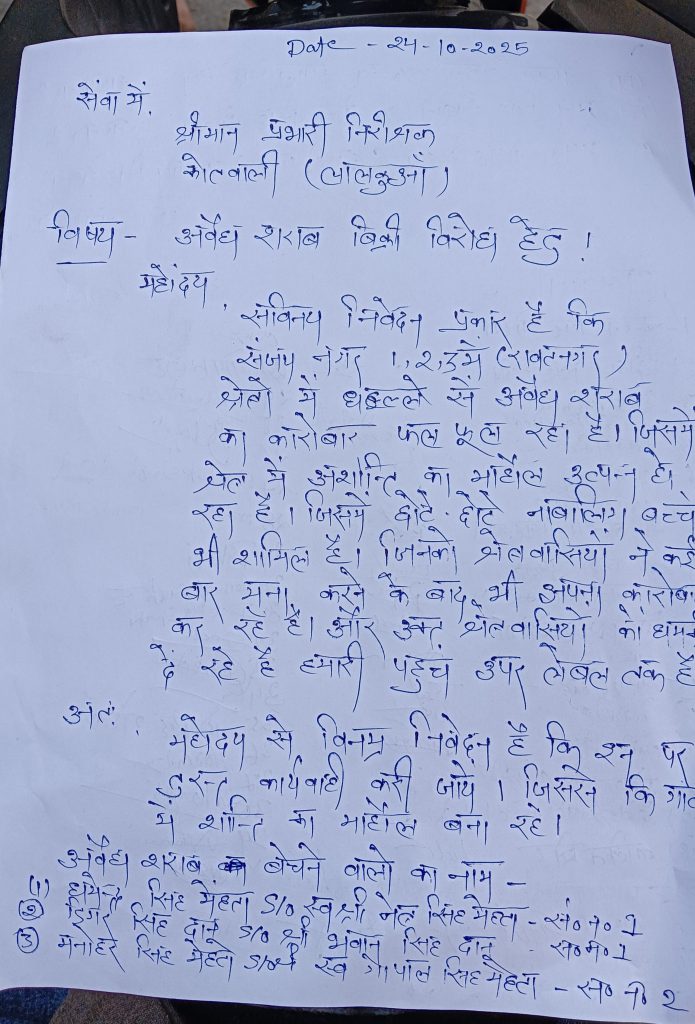 Date - 24-10-2025
सेंवा में,
श्रीमान प्रभारी निरीक्षक
कोतवाली (लालकुआँ)
विषय - अवैध शराब बिक्री विरोध हेतु !
महोदय,
सविनय निवेदन प्रकार है कि
संजय नगर 1, 2, 3 में (रावतनगर)
क्षेत्रो में धड़ल्ले से अवैध शराब
का कारोबार फल फूल रहा है। जिसमें
क्षेत्र में अशान्ति का माहौल उत्पन्न हो
रहा है। जिसमें छोटे-छोटे नाबालिग बच्चे
भी शामिल है। जिनको क्षेत्रवासियों ने कई
बार मना करने के बाद भी अपना कारोबा
कर रहे है। और उक्त क्षेत्रवासियो को धमकी
दे रहे है हमारी पहुंच उपर लेबल तक है
अतः
महोदय से विनम्र निवेदन है कि इन पर
तुरन्त कार्यवाही करी जाये। जिससे कि गांव
में शान्ति का माहौल बना रहे।
अवैध शराब बेचने वालो का नाम -
(1) सिंह मेहता S/o स्व श्री सिंह मेहता - सं० न० 1
(2) सिंह दानू S/o श्री सिंह दानू - सं० न० 1
(3) मनोहर सिंह मेहता S/o स्व गोपाल सिंह मेहता - सं० न० 2